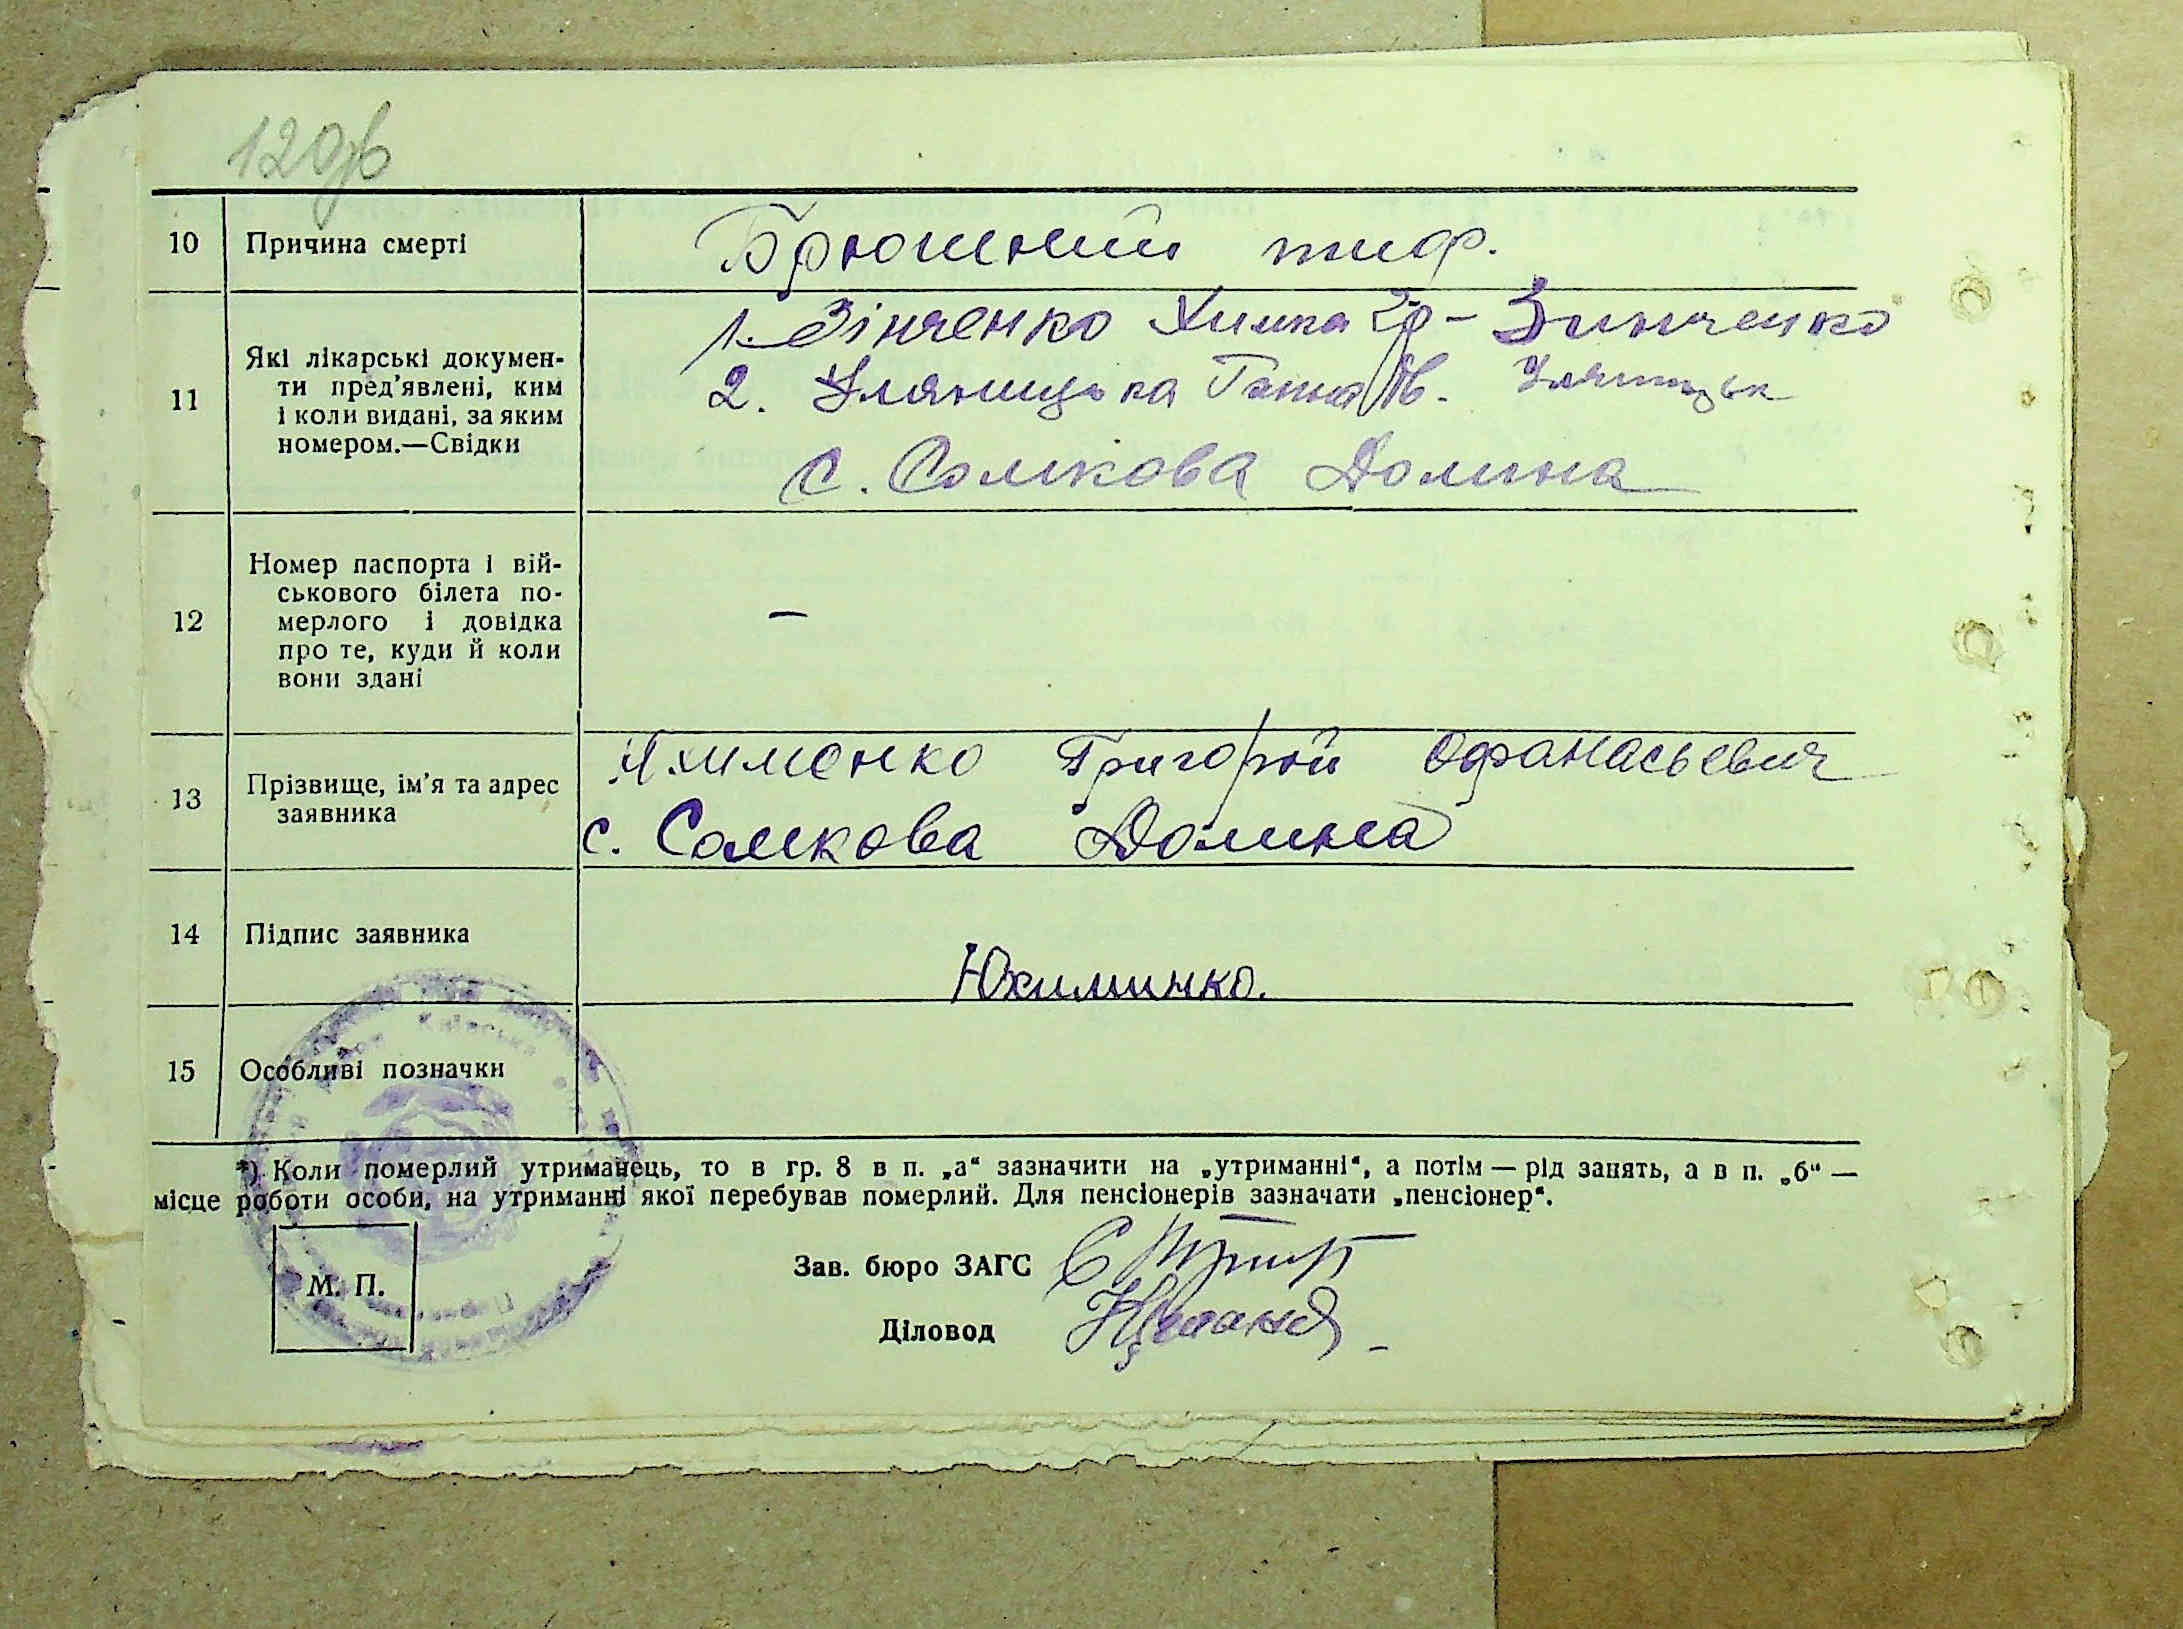 120
10 Причина смерті Брюшний тиф.
11 Які лікарські докумен-
ти пред'явлені, ким
і коли видані, за яким
номером.—Свідки
1. Зінченко Химка - Зинченко
2. Уляницька Ганна Ів.
с. Сомкова Долина
12 Номер паспорта і вій-
ськового білета по-
мерлого і довідка
про те, куди й коли
вони здані
–
13 Прізвище, ім'я та адрес
заявника
Григорій Офанасьевич
с. Сомкова Долина
14 Підпис заявника
Юхиминко.
15 Особливі позначки
*) Коли померлий утриманець, то в гр. 8 в п. „а“ зазначити на „утриманні“, а потім — рід занять, а в п. „б“ —
місце роботи особи, на утриманні якої перебував померлий. Для пенсіонерів зазначати „пенсіонер“.
М. П.
Зав. бюро ЗАГС
Діловод